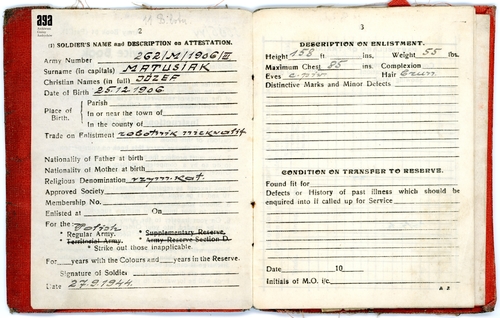 aga
2
(1) SOLDIER'S NAME and DESCRIPTION on ATTESTATION.
Army Number 262/M/1906/E
Surname (in capitals) MATUSIAK
Christian Names (in full) JÓZEF
Date of Birth 25.12.1906
Place of Birth.
Parish
In or near the town of
In the county of
Trade on Enlistment robotnik
Nationality of Father at birth
Nationality of Mother at birth
Religious Denomination rzym. kat.
Approved Society
Membership No.
Enlisted at On
For the Polish
* Regular Army. * Supplementary Reserve.
* Territorial Army. * Army Reserve Section D.
* Strike out those inapplicable.
For years with the Colours and years in the Reserve.
Signature of Soldier
Date 27.9.1944
3
DESCRIPTION ON ENLISTMENT.
Height 158 ft ins. Weight 55 lbs.
Maximum Chest 85 ins. Complexion
Eyes Hair
Distinctive Marks and Minor Defects
CONDITION ON TRANSFER TO RESERVE.
Found fit for
Defects or History of past illness which should be
enquired into if called up for Service
Date 10
Initials of M.O. i/c